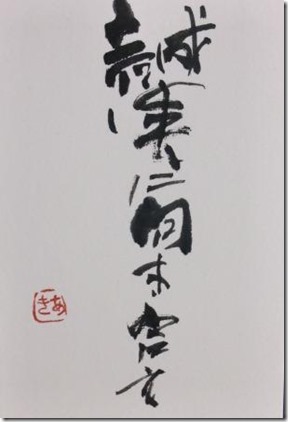 誠実に向き合う
あき